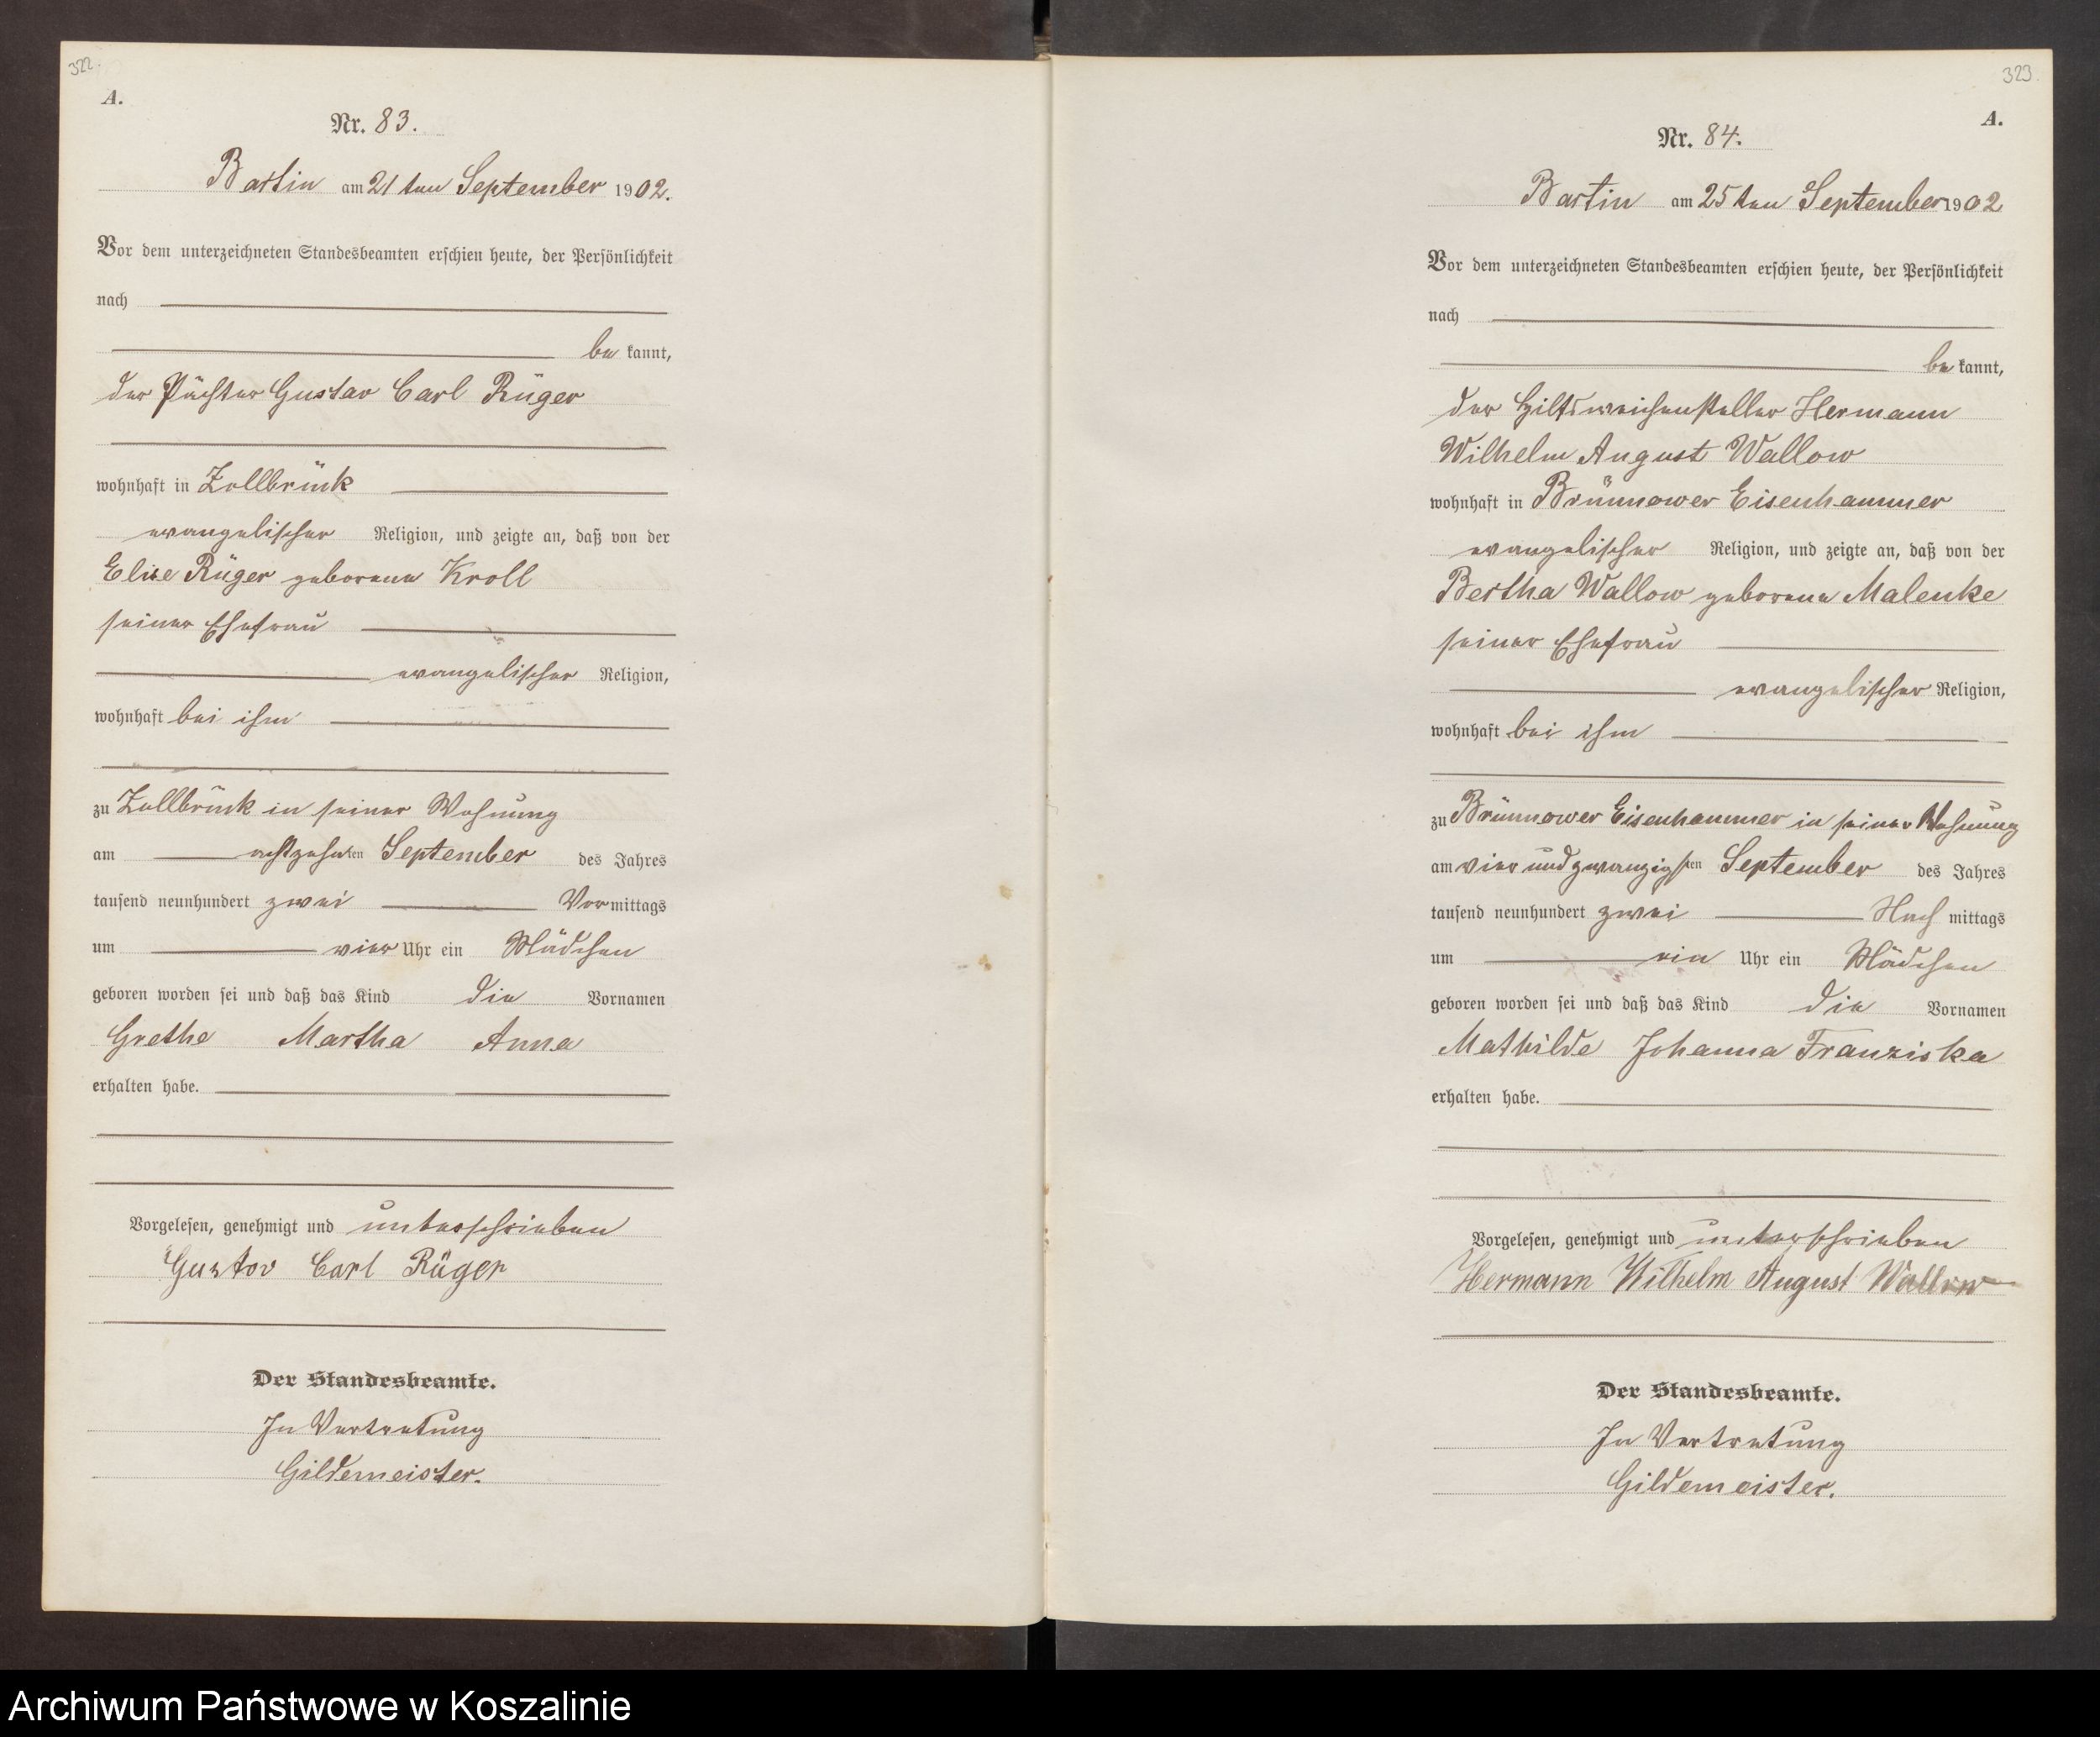 322.
A.
Nr. 83.
Bartin am 21 ten September 1902.
Vor dem unterzeichneten Standesbeamten erschien heute, der Persönlichkeit
nach
be kannt,
der Pächter Gustav Carl Rüger
wohnhaft in Zollbrück
evangelischer Religion, und zeigte an, daß von der
Elise Rüger geborene Kroll
seiner Ehefrau
evangelischer Religion,
wohnhaft bei ihm
zu Zollbrück in seiner Wohnung
am achtzehnten September des Jahres
tausend neunhundert zwei Vormittags
um vier Uhr ein Mädchen
geboren worden sei und daß das Kind die Vornamen
Grethe Martha Anna
erhalten habe.
Vorgelesen, genehmigt und unterschrieben
Gustav Carl Rüger
Der Standesbeamte.
In Vertretung
Gildemeister.
323.
A.
Nr. 84.
Bartin am 25 ten September 1902
Vor dem unterzeichneten Standesbeamten erschien heute, der Persönlichkeit
nach
be kannt,
der Hilfsweichensteller Hermann
Wilhelm August Wallow
wohnhaft in Brünnower Eisenhammer
evangelischer Religion, und zeigte an, daß von der
Bertha Wallow geborene Malenke
seiner Ehefrau
evangelischer Religion,
wohnhaft bei ihm
zu Brünnower Eisenhammer in seiner Wohnung
am vier und zwanzigsten September des Jahres
tausend neunhundert zwei Nach mittags
um ein Uhr ein Mädchen
geboren worden sei und daß das Kind die Vornamen
Mathilde Johanna Franziska
erhalten habe.
Vorgelesen, genehmigt und unterschrieben
Hermann Wilhelm August Wallow
Der Standesbeamte.
In Vertretung
Gildemeister.
Archiwum Państwowe w Koszalinie